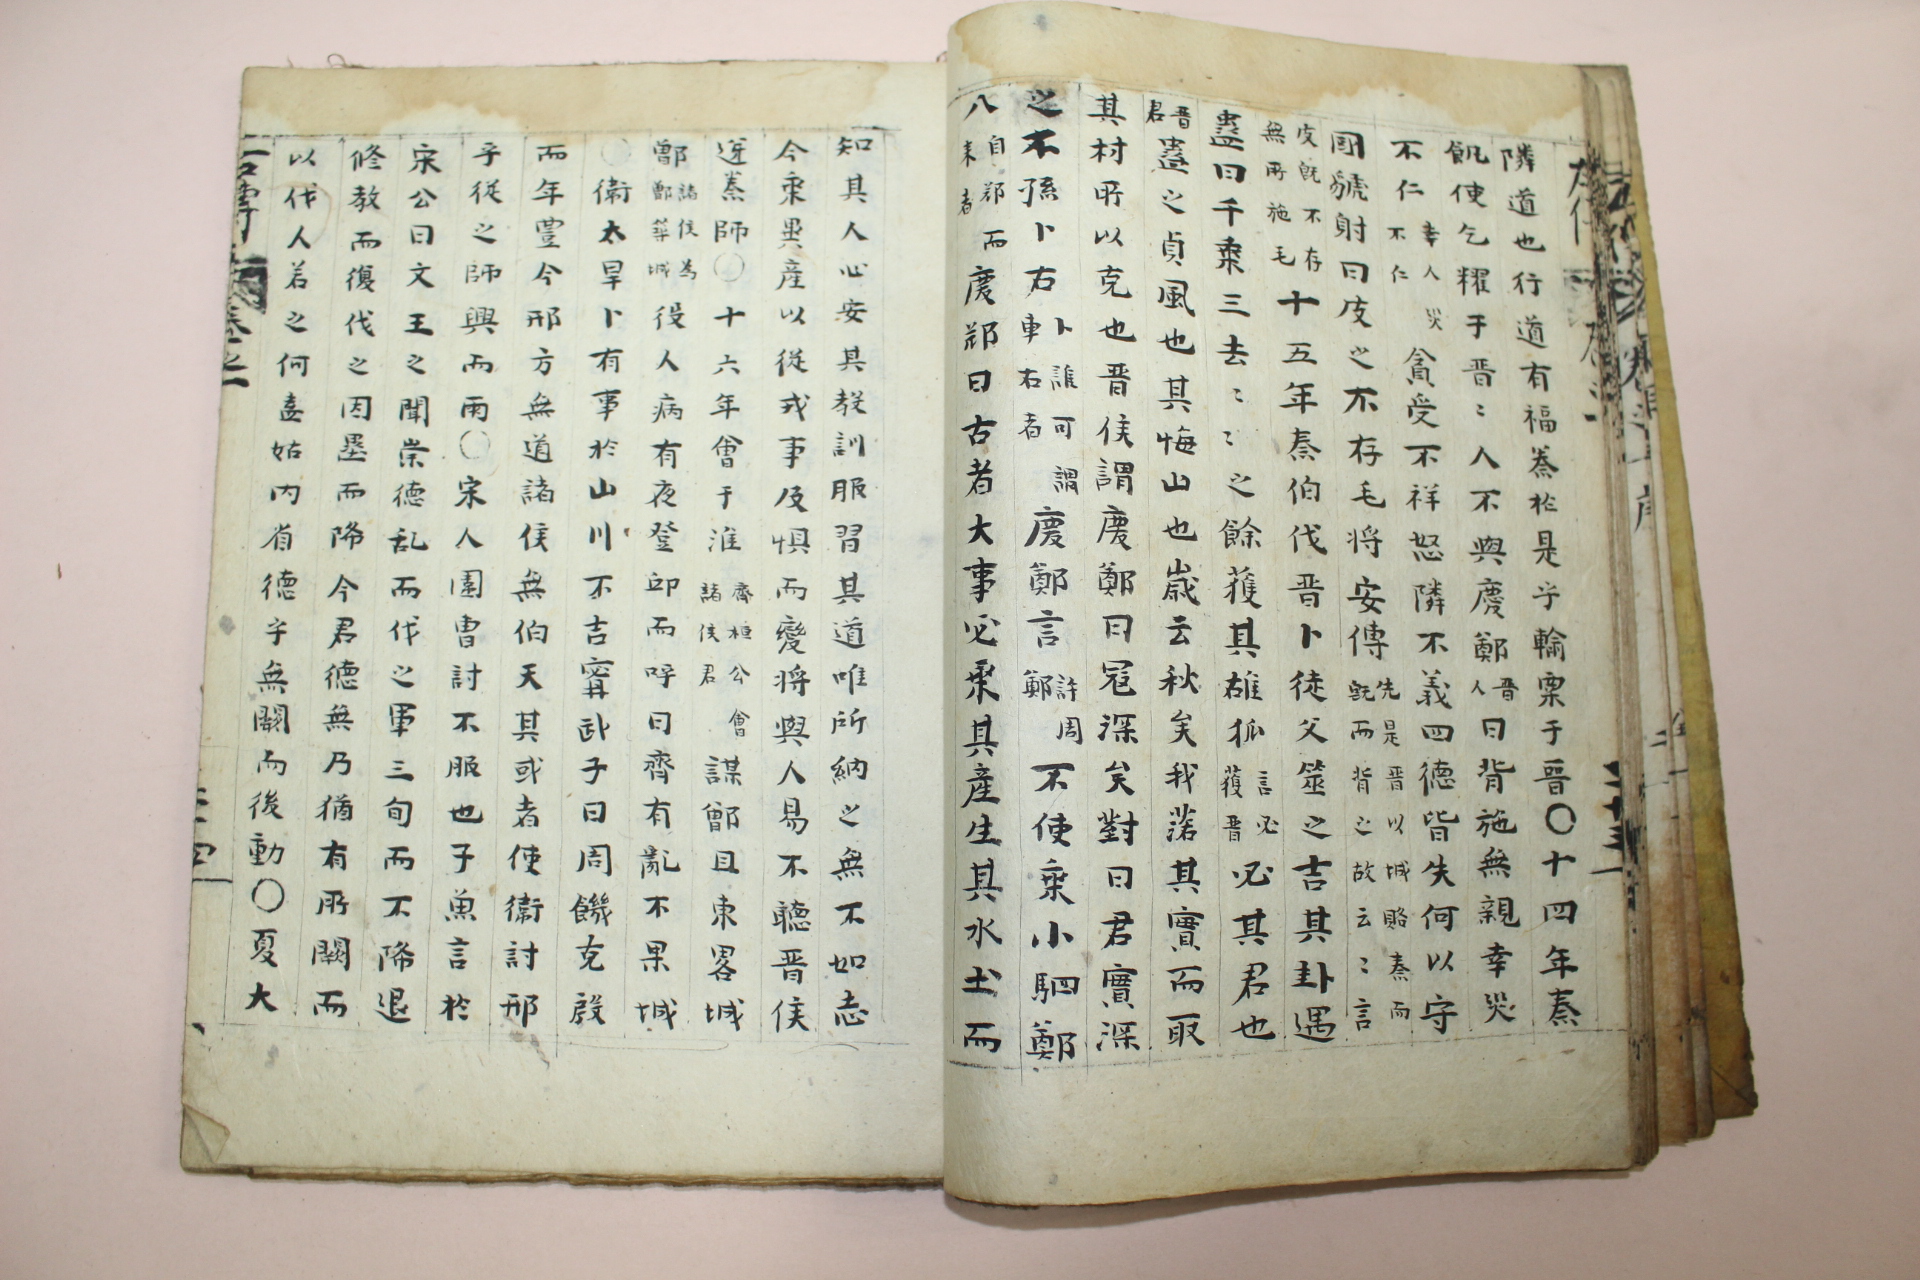 隣道也行道有福秦於是乎輸粟于晋〇十四年秦
飢使乞糴于晋〻人不與慶鄭晋人曰背施無親幸災
不仁幸人災不仁貪受不祥怒隣不義四德皆失何以守
國虢射曰皮之不存毛將安傅先是晋以城賂秦而既而背之故云〻言
皮既不存無所施毛十五年秦伯伐晋卜徒父筮之吉其卦遇
蠱曰千乘三去〻〻之餘獲其雄狐言必獲晋必其君也
晋君蠱之貞風也其悔山也歲云秋矣我落其實而取
其材所以克也晋侯謂慶鄭曰寇深矣對曰君實深
之不孫卜右卜誰可謂車右者慶鄭言許周鄭不使乘小駟鄭
八自郑而来者慶郑曰古者大事必乘其產生其水土而
知其人心安其教訓服習其道唯所納之無不如志
今乘異產以從戎事及惧而變將與人易不聴晋侯
逆秦師〇十六年會于淮齊桓公會諸侯君謀鄫且東畧城
鄫諸侯為鄫築城役人病有夜登邱而呼曰齊有亂不果城
〇衛太旱卜有事於山川不吉寗武子曰周饑克殷
而年豊今邢方無道諸侯無伯天其或者使衛討邢
乎從之師興而雨〇宋人圍曺討不服也子魚言於
宋公曰文王之聞崇德乱而伐之軍三旬而不降退
修教而復伐之因壘而降今君德無乃猶有所闕而
以伐人若之何盍姑内省德乎無闕而後動〇夏大